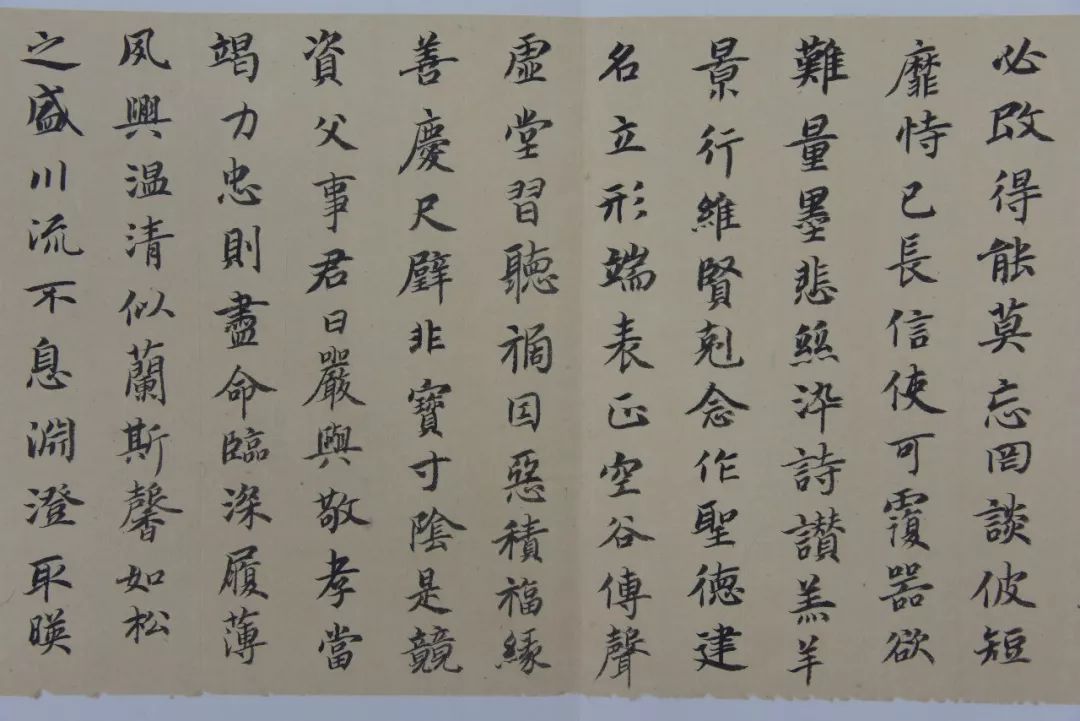 必改得能莫忘罔談彼短
靡恃已長信使可覆器欲
難量墨悲絲染詩讚羔羊
景行維賢剋念作聖德建
名立形端表正空谷傳聲
虛堂習聽禍因惡積福緣
善慶尺璧非寶寸陰是競
資父事君曰嚴與敬孝當
竭力忠則盡命臨深履薄
夙興温清似蘭斯馨如松
之盛川流不息淵澄取暎